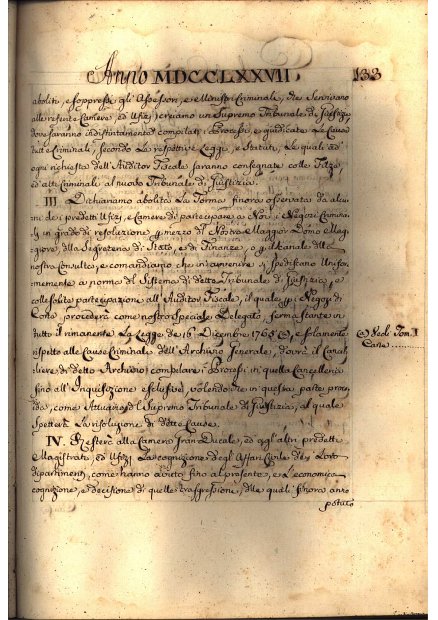 Anno MDCCLXXVII. 133
aboliti, e soppressi gli Assessori, e Ministri Criminali, che Servivano
alle referite Camere, ed Ufizj creiamo un Supremo Tribunale di Giustizia,
dove saranno indistintamente compilati i Processi, e giudicate Le Cause
tutte Criminali, secondo Le respettive Leggi, e Statuti, Le quali ad
ogni richiesta dell' Auditor Fiscale saranno consegnate colle Filze,
ed atti Criminali al nuovo Tribunale di Giustizia.
III. Dichiariamo abolita La Forma finora osservata da alcu
ni de i predetti Ufizj, e Camere di partecipare a Noi i Negozi Crimina
li in grado di resoluzione per mezzo del Nostro Maggior Domo Mag
giore della Segreteria di Stato, e di Finanze, o pel canale della
nostra Consulta, e comandiamo che in avvenire si spediscano Unifor
memente a norma del Sistema di detto Tribunale di Giustizia, e
colle solite partecipazioni all' Auditor Fiscale, il quale per i Negozi di
procederà come nostro Speciale Delegato, ferma stante in
tutto il rimanente La Legge de' 16. Dicembre 1765 (a), e solamente
rispetto alle Cause Criminali dell' Archivio Generale, dovrà il Cancel
liere di detto Archivio compilare i Processi in quella Cancelleria
fino all' Inquisizione esclusive, volendo che in questa parte proce
da, come Attuario del Supremo Tribunale di Giustizia, al quale
spetterà La risoluzione di dette Cause.
(a) Vedi Tom. I.
Carte
IV. Resterà alla Camera Gran Ducale, ed agli altri predetti
Magistrati, ed Ufizj La cognizione degli Affari Civili de i Loro
dipartimenti, come hanno avuto fino al presente, e L'economica
cognizione, e decisione di quelle trasgressioni, delle quali finora anno
potuto